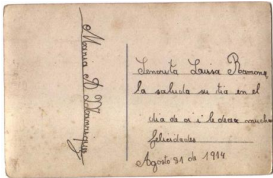 Maria A. Manrique
Senorita Luisa Ramona
la saluda su tia en el
dia de oi i le desea muchas
felicidades
Agosto 31 de 1914